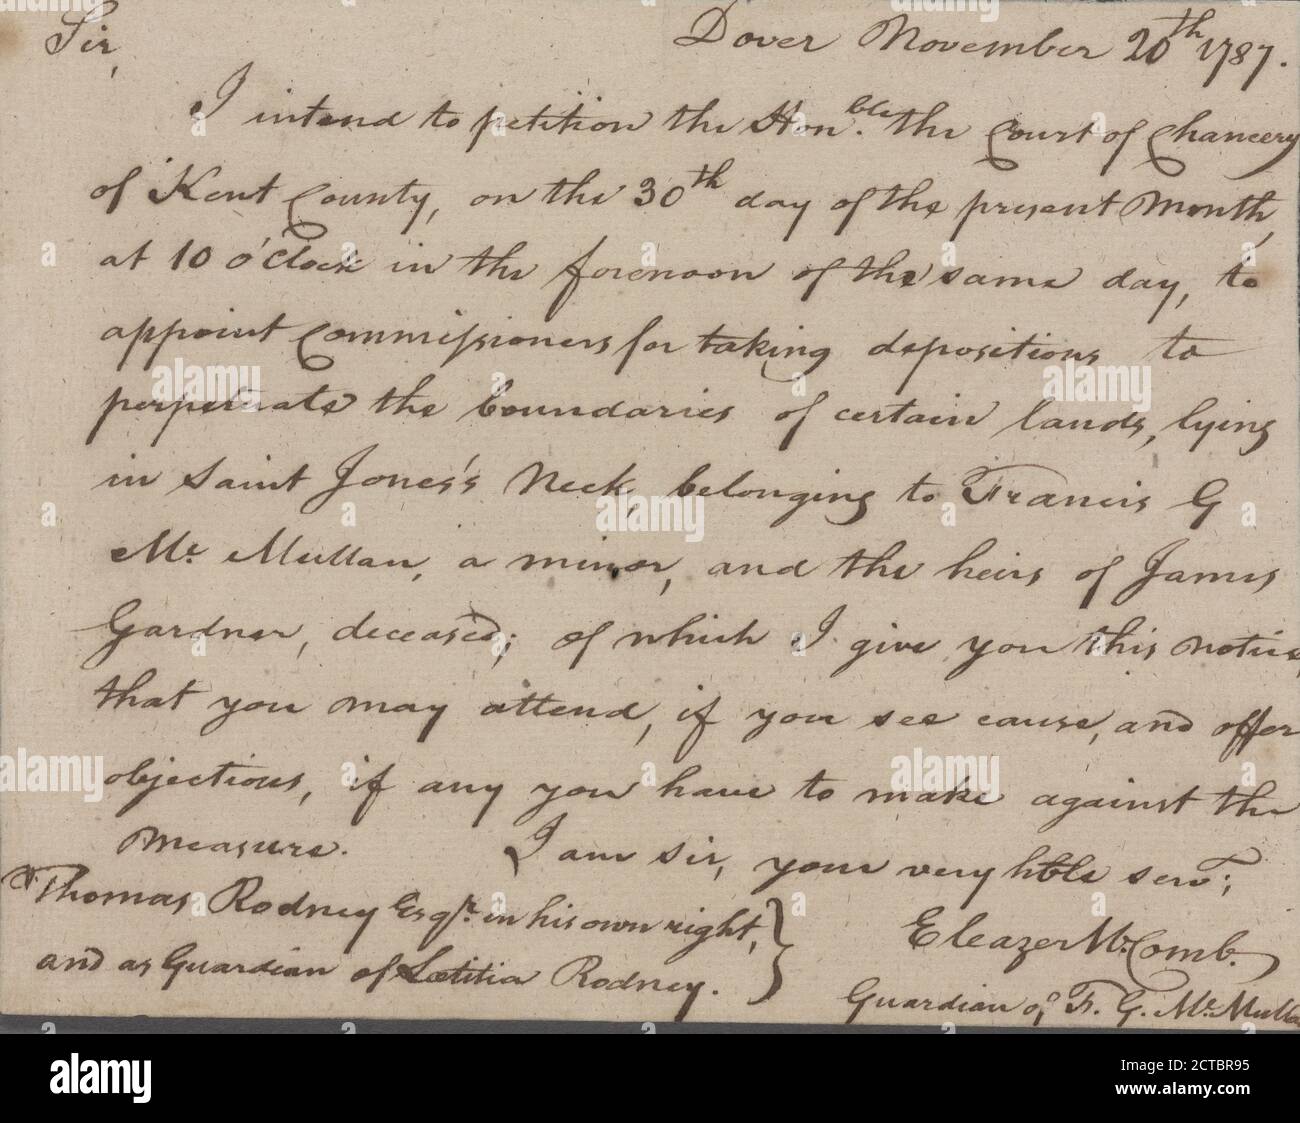 Sir, Dover November 20th 1787.
I intend to petition the Honble. the Court of Chancery
of Kent County, on the 30th day of the present Month,
at 10 o'Clock in the forenoon of the same day, to
appoint Commissioners for taking depositions to
perpetuate the boundaries of certain lands, lying
in Saint Jones's Neck, belonging to Francis G
Mc. Mullan, a minor, and the heirs of James
Gardner, deceas'd; of which I give you this notice,
that you may attend, if you see cause, and offer
objections, if any you have to make against the
measure. I am sir, your very hble servt;
Thomas Rodney Esqr. in his own right,
and as Guardian of Lætitia Rodney.
Eleazer McComb.
Guardian of F. G. Mc. Mullan
alamy
Image ID: 2CTBR95
www.alamy.com